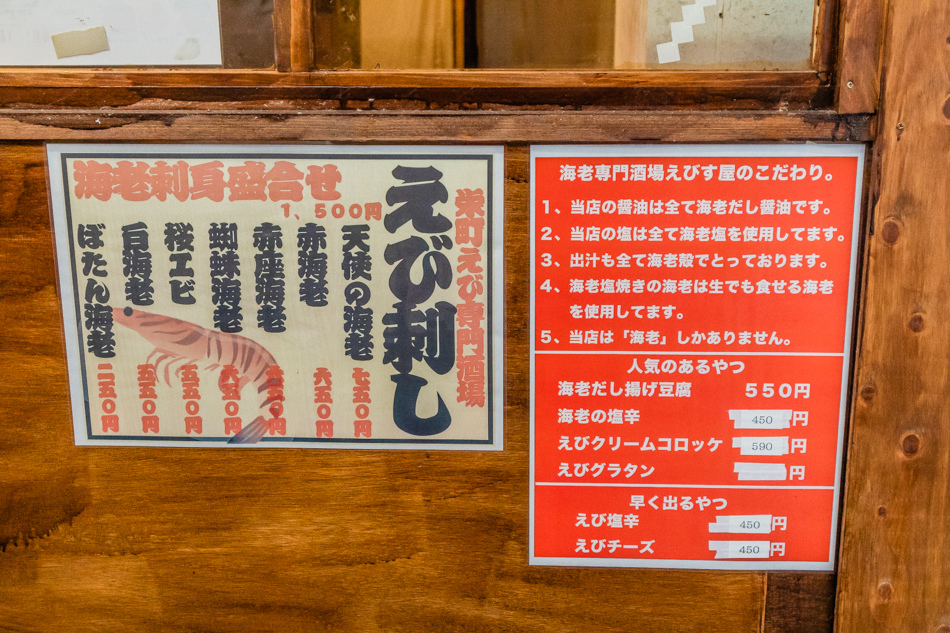 海老刺身盛合せ
1、500円
栄町えび専門酒場
えび刺し
天使の海老 七五〇円
赤海老 六五〇円
赤座海老
蜘蛛海老 六五〇円
桜エビ 五五〇円
白海老 五五〇円
ぼたん海老 一二五〇円
海老専門酒場えびす屋のこだわり。
1、当店の醤油は全て海老だし醤油です。
2、当店の塩は全て海老塩を使用してます。
3、出汁も全て海老殻でとっております。
4、海老塩焼きの海老は生でも食せる海老
を使用してます。
5、当店は「海老」しかありません。
人気のあるやつ
海老だし揚げ豆腐 550円
海老の塩辛 450円
えびクリームコロッケ 590円
えびグラタン 円
早く出るやつ
えび塩辛 450円
えびチーズ 450円